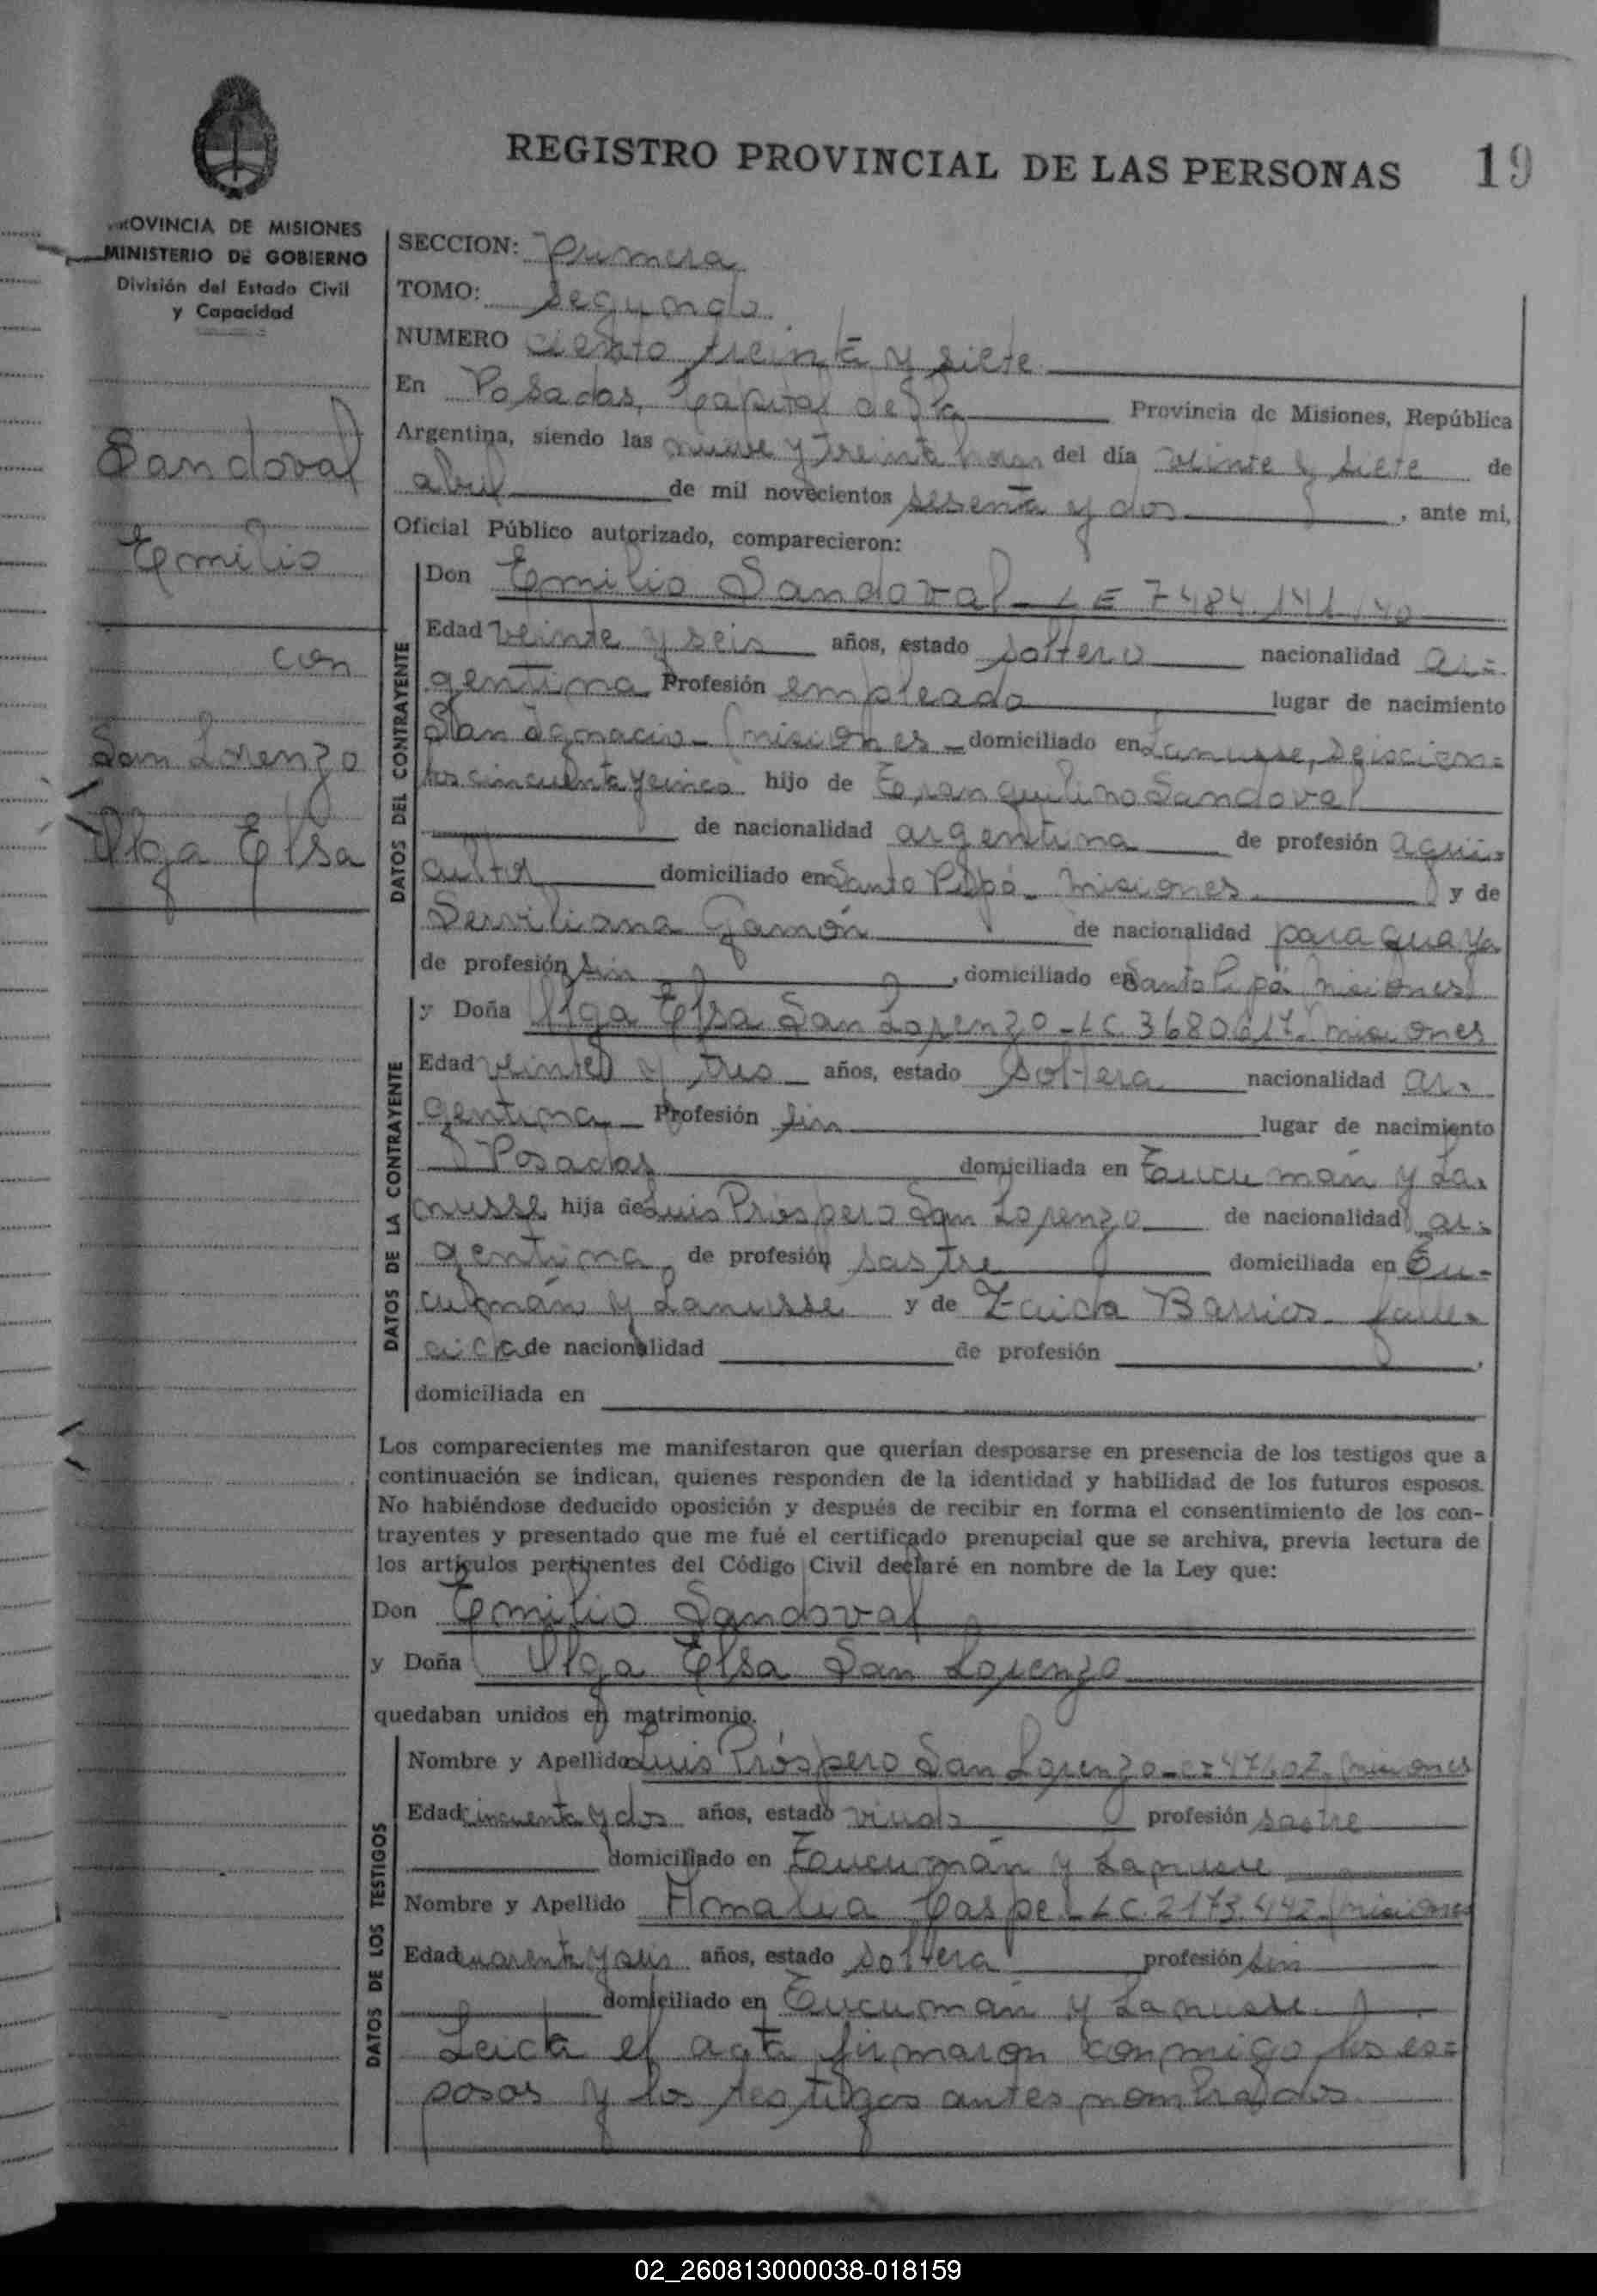 REGISTRO PROVINCIAL DE LAS PERSONAS 19
PROVINCIA DE MISIONES
MINISTERIO DE GOBIERNO
División del Estado Civil
y Capacidad
Sandoval
Emilio
con
San Lorenzo
Olga Elsa
SECCION: Primera
TOMO: Segundo
NUMERO ciento treinta y siete
En Posadas, Capital de la Provincia de Misiones, República
Argentina, siendo las nueve y treinta horas del día veinte y siete de
abril de mil novecientos sesenta y dos, ante mi,
Oficial Público autorizado, comparecieron:
DATOS DEL CONTRAYENTE
Don Emilio Sandoval - LE 7484.141/40
Edad veinte y seis años, estado soltero nacionalidad ar=
gentina Profesión empleado lugar de nacimiento
San Ignacio - Misiones - domiciliado en Lanusse, seiscien=
tos cincuenta y cinco hijo de Tranquilino Sandoval
de nacionalidad argentina de profesión agri-
cultor domiciliado en Santo Pipó - Misiones y de
Serviliana Gamón de nacionalidad paraguaya
de profesión sin, domiciliado en Santo Pipó Misiones
DATOS DE LA CONTRAYENTE
y Doña Olga Elsa San Lorenzo - LC. 3680617. Misiones
Edad veinte y tres años, estado soltera nacionalidad ar-
gentina Profesión sin lugar de nacimiento
Posadas domiciliada en Tucumán y La-
nusse hija de Luis Próspero San Lorenzo de nacionalidad ar-
gentina de profesión sastre domiciliada en Tu-
cumán y Lanusse y de Zaida Barrios - falle-
cida de nacionalidad de profesión ,
domiciliada en
Los comparecientes me manifestaron que querían desposarse en presencia de los testigos que a
continuación se indican, quienes responden de la identidad y habilidad de los futuros esposos.
No habiéndose deducido oposición y después de recibir en forma el consentimiento de los con-
trayentes y presentado que me fué el certificado prenupcial que se archiva, previa lectura de
los artículos pertinentes del Código Civil declaré en nombre de la Ley que:
Don Emilio Sandoval
y Doña Olga Elsa San Lorenzo
quedaban unidos en matrimonio.
DATOS DE LOS TESTIGOS
Nombre y Apellido Luis Próspero San Lorenzo - Misiones
Edad cincuenta y dos años, estado viudo profesión sastre
domiciliado en Tucumán y Lanusse
Nombre y Apellido Amalia Caspe - LC. 2173.442 Misiones
Edad cuarenta y seis años, estado soltera profesión sin
domiciliado en Tucumán y Lanusse.
Leida el acta firmaron conmigo los es=
posos y los testigos antes nombrados
02_260813000038-018159